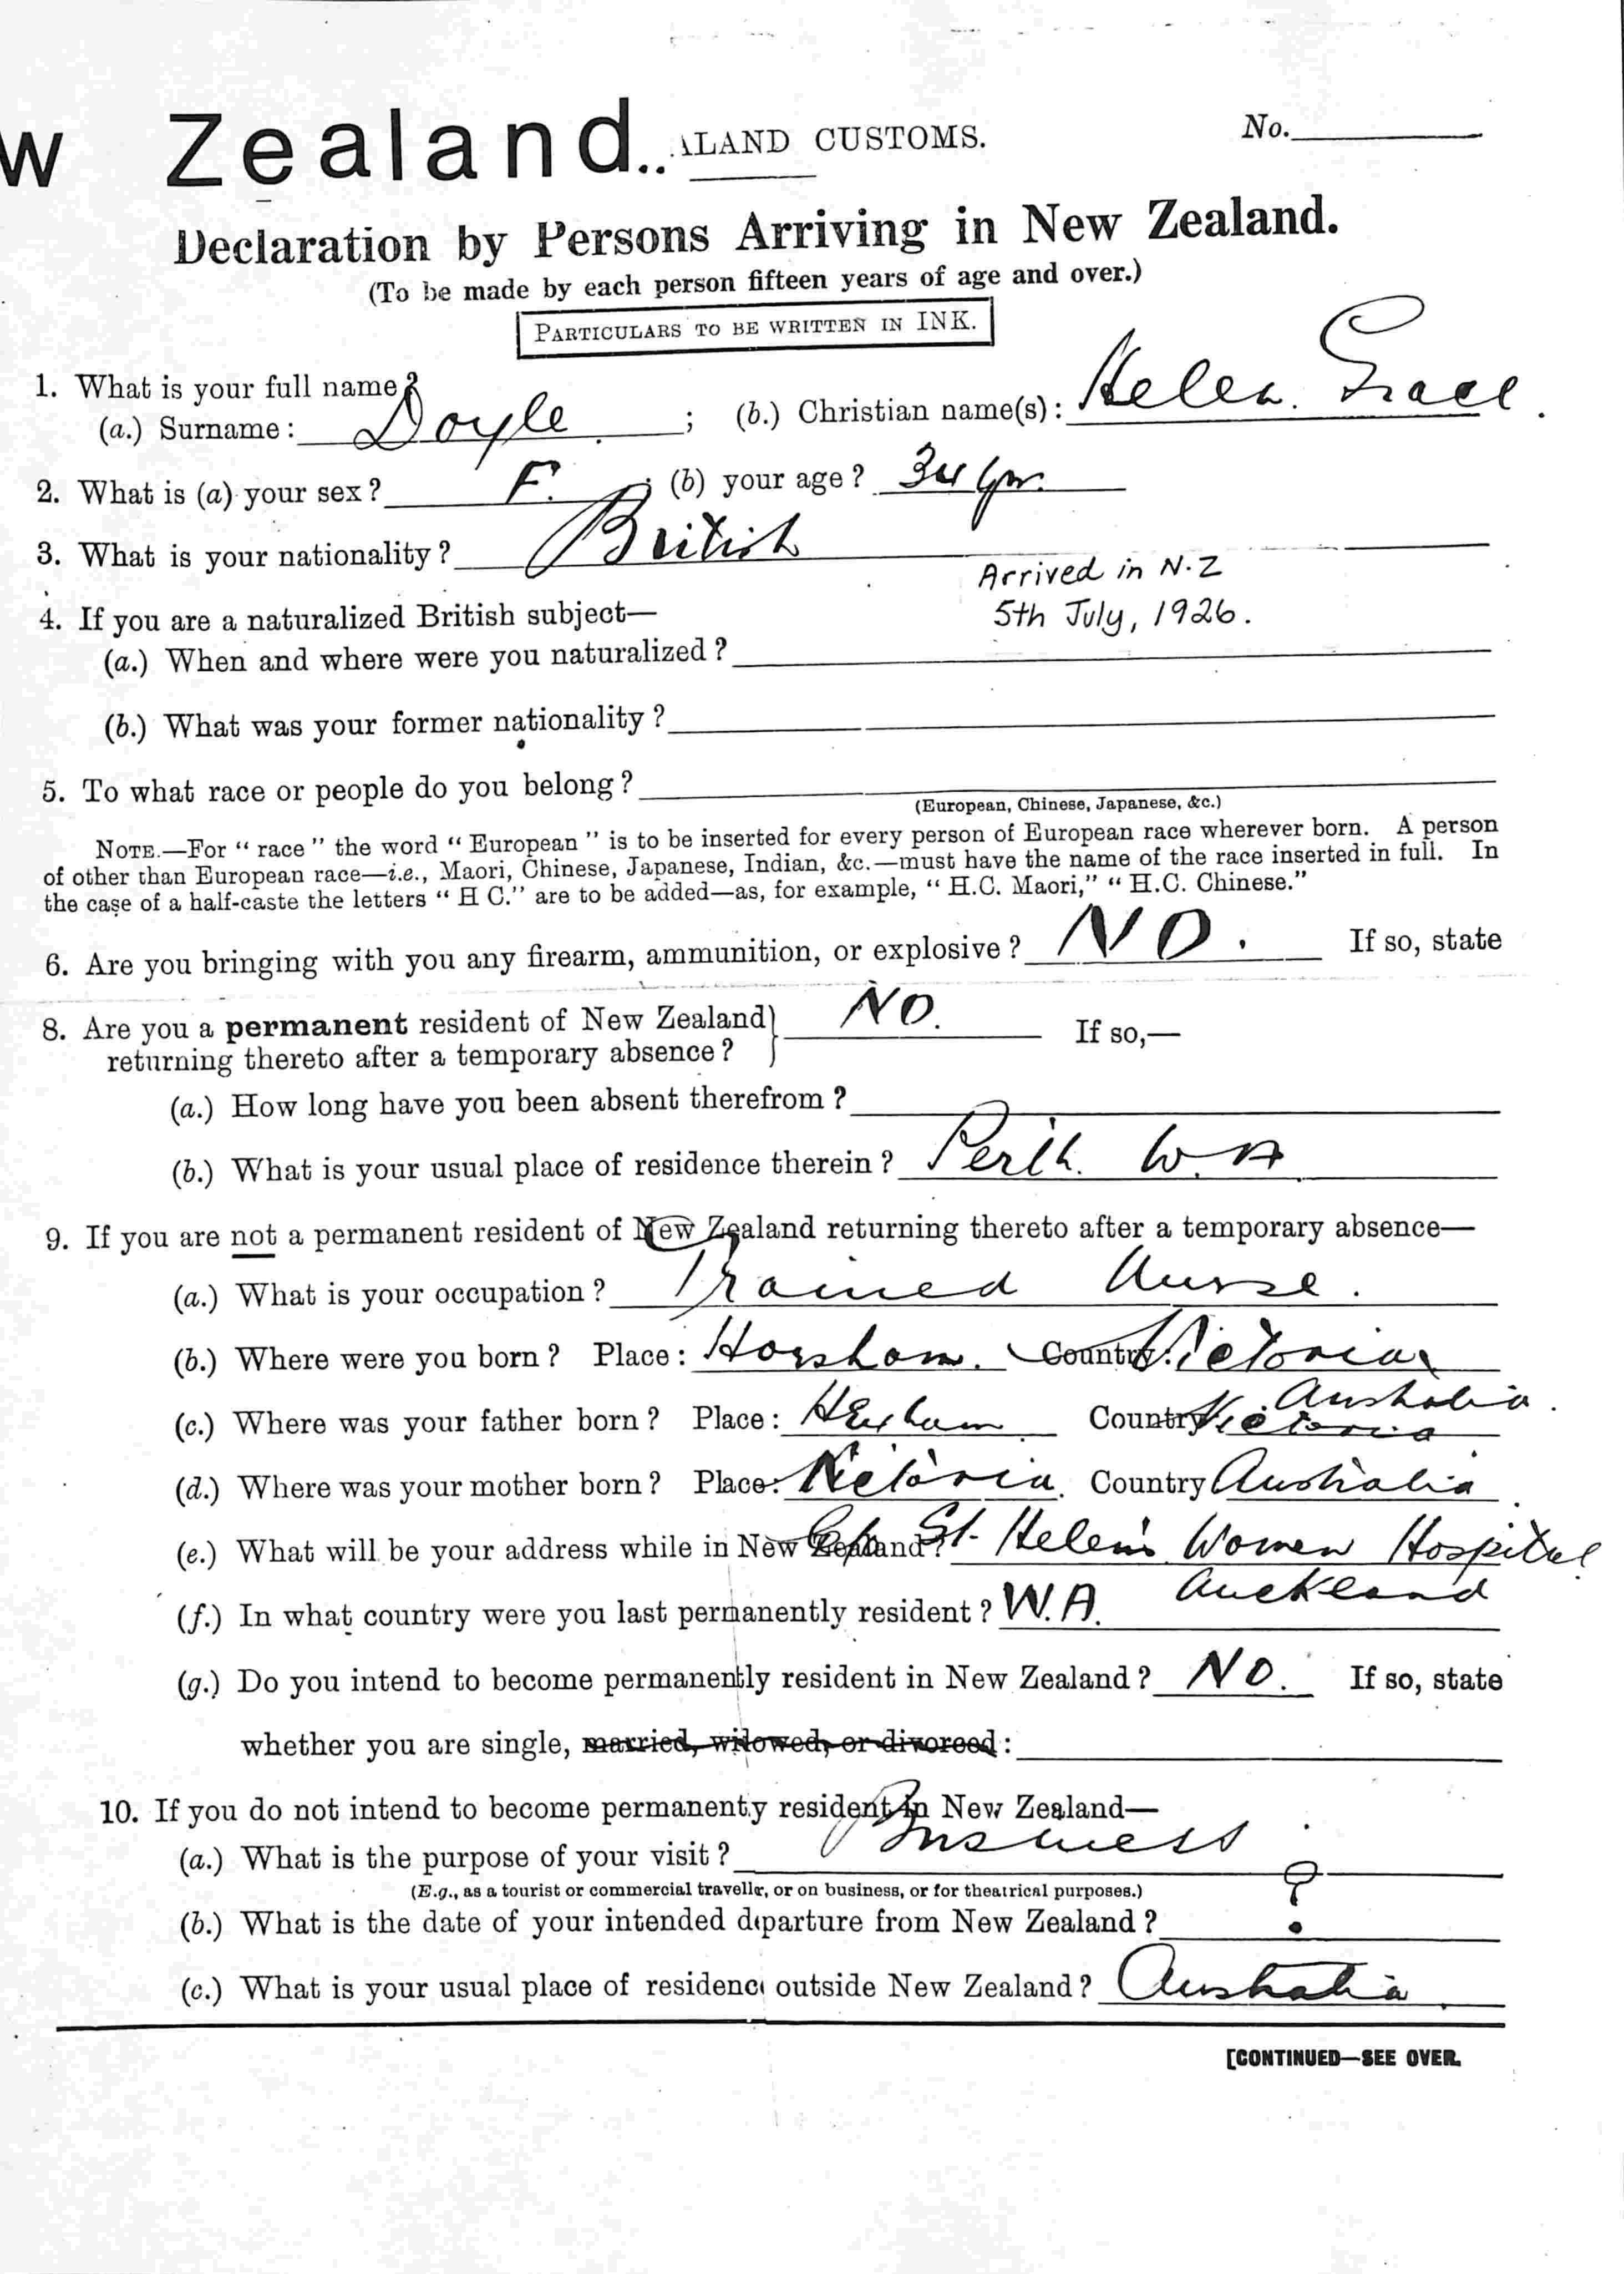 w Zealand..
ALAND CUSTOMS.
No.
Declaration by Persons Arriving in New Zealand.
(To be made by each person fifteen years of age and over.)
PARTICULARS TO BE WRITTEN IN INK.
1. What is your full name?
(a.) Surname: Doyle ; (b.) Christian name(s): Helen Grace.
2. What is (a) your sex? F. ; (b) your age? 34 yrs.
3. What is your nationality? British
Arrived in N.Z
5th July, 1926.
4. If you are a naturalized British subject—
(a.) When and where were you naturalized?
(b.) What was your former nationality?
5. To what race or people do you belong?
(European, Chinese, Japanese, &c.)
NOTE.—For "race" the word "European" is to be inserted for every person of European race wherever born. A person
of other than European race—i.e., Maori, Chinese, Japanese, Indian, &c.—must have the name of the race inserted in full. In
the case of a half-caste the letters "H C." are to be added—as, for example, "H.C. Maori," "H.C. Chinese."
6. Are you bringing with you any firearm, ammunition, or explosive? NO. If so, state
8. Are you a permanent resident of New Zealand } NO. If so,—
returning thereto after a temporary absence?
(a.) How long have you been absent therefrom?
(b.) What is your usual place of residence therein? Perth. W.A
9. If you are not a permanent resident of New Zealand returning thereto after a temporary absence—
(a.) What is your occupation? Trained Nurse.
(b.) Where were you born? Place: Horsham. Country: Victoria
Australia.
(c.) Where was your father born? Place: Hexham Country Victoria
(d.) Where was your mother born? Place: Victoria. Country Australia.
(e.) What will be your address while in New Zealand? St. Helen's Women Hospital
Auckland
(f.) In what country were you last permanently resident? W.A.
(g.) Do you intend to become permanently resident in New Zealand? NO. If so, state
whether you are single, married, widowed, or divorced:
10. If you do not intend to become permanenty resident in New Zealand—
(a.) What is the purpose of your visit? Business
(E.g., as a tourist or commercial traveller, or on business, or for theatrical purposes.)
(b.) What is the date of your intended departure from New Zealand? ?
(c.) What is your usual place of residence outside New Zealand? Australia.
[CONTINUED—SEE OVER.